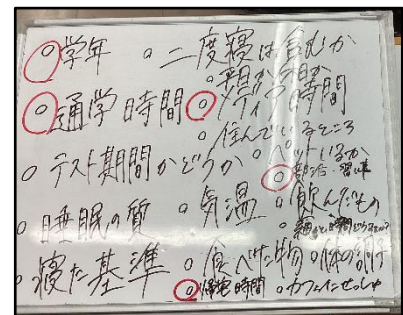 ○学年 ○二度寝は含むか
○平日か休日か
○通学時間 ○メディア時間
○住んでいるところ
○テスト期間かどうか ○ペットいるか
○部活・習い事
○睡眠の質 ○気温 ○飲んだもの
○寝た基準 ○食べた物 ○体の調子
○帰宅時間 ○カフェインせっしゅ